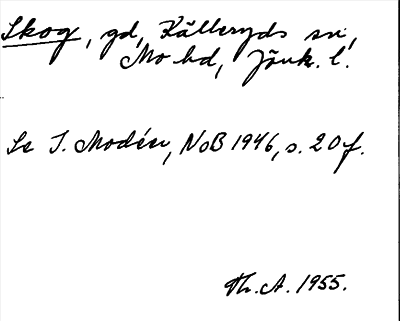 Skog, gd, Källeryds sn,
Mo hd, Jönk. l.
Se I. Modéer, NoB 1946, s. 20 f.
Th. A. 1955.